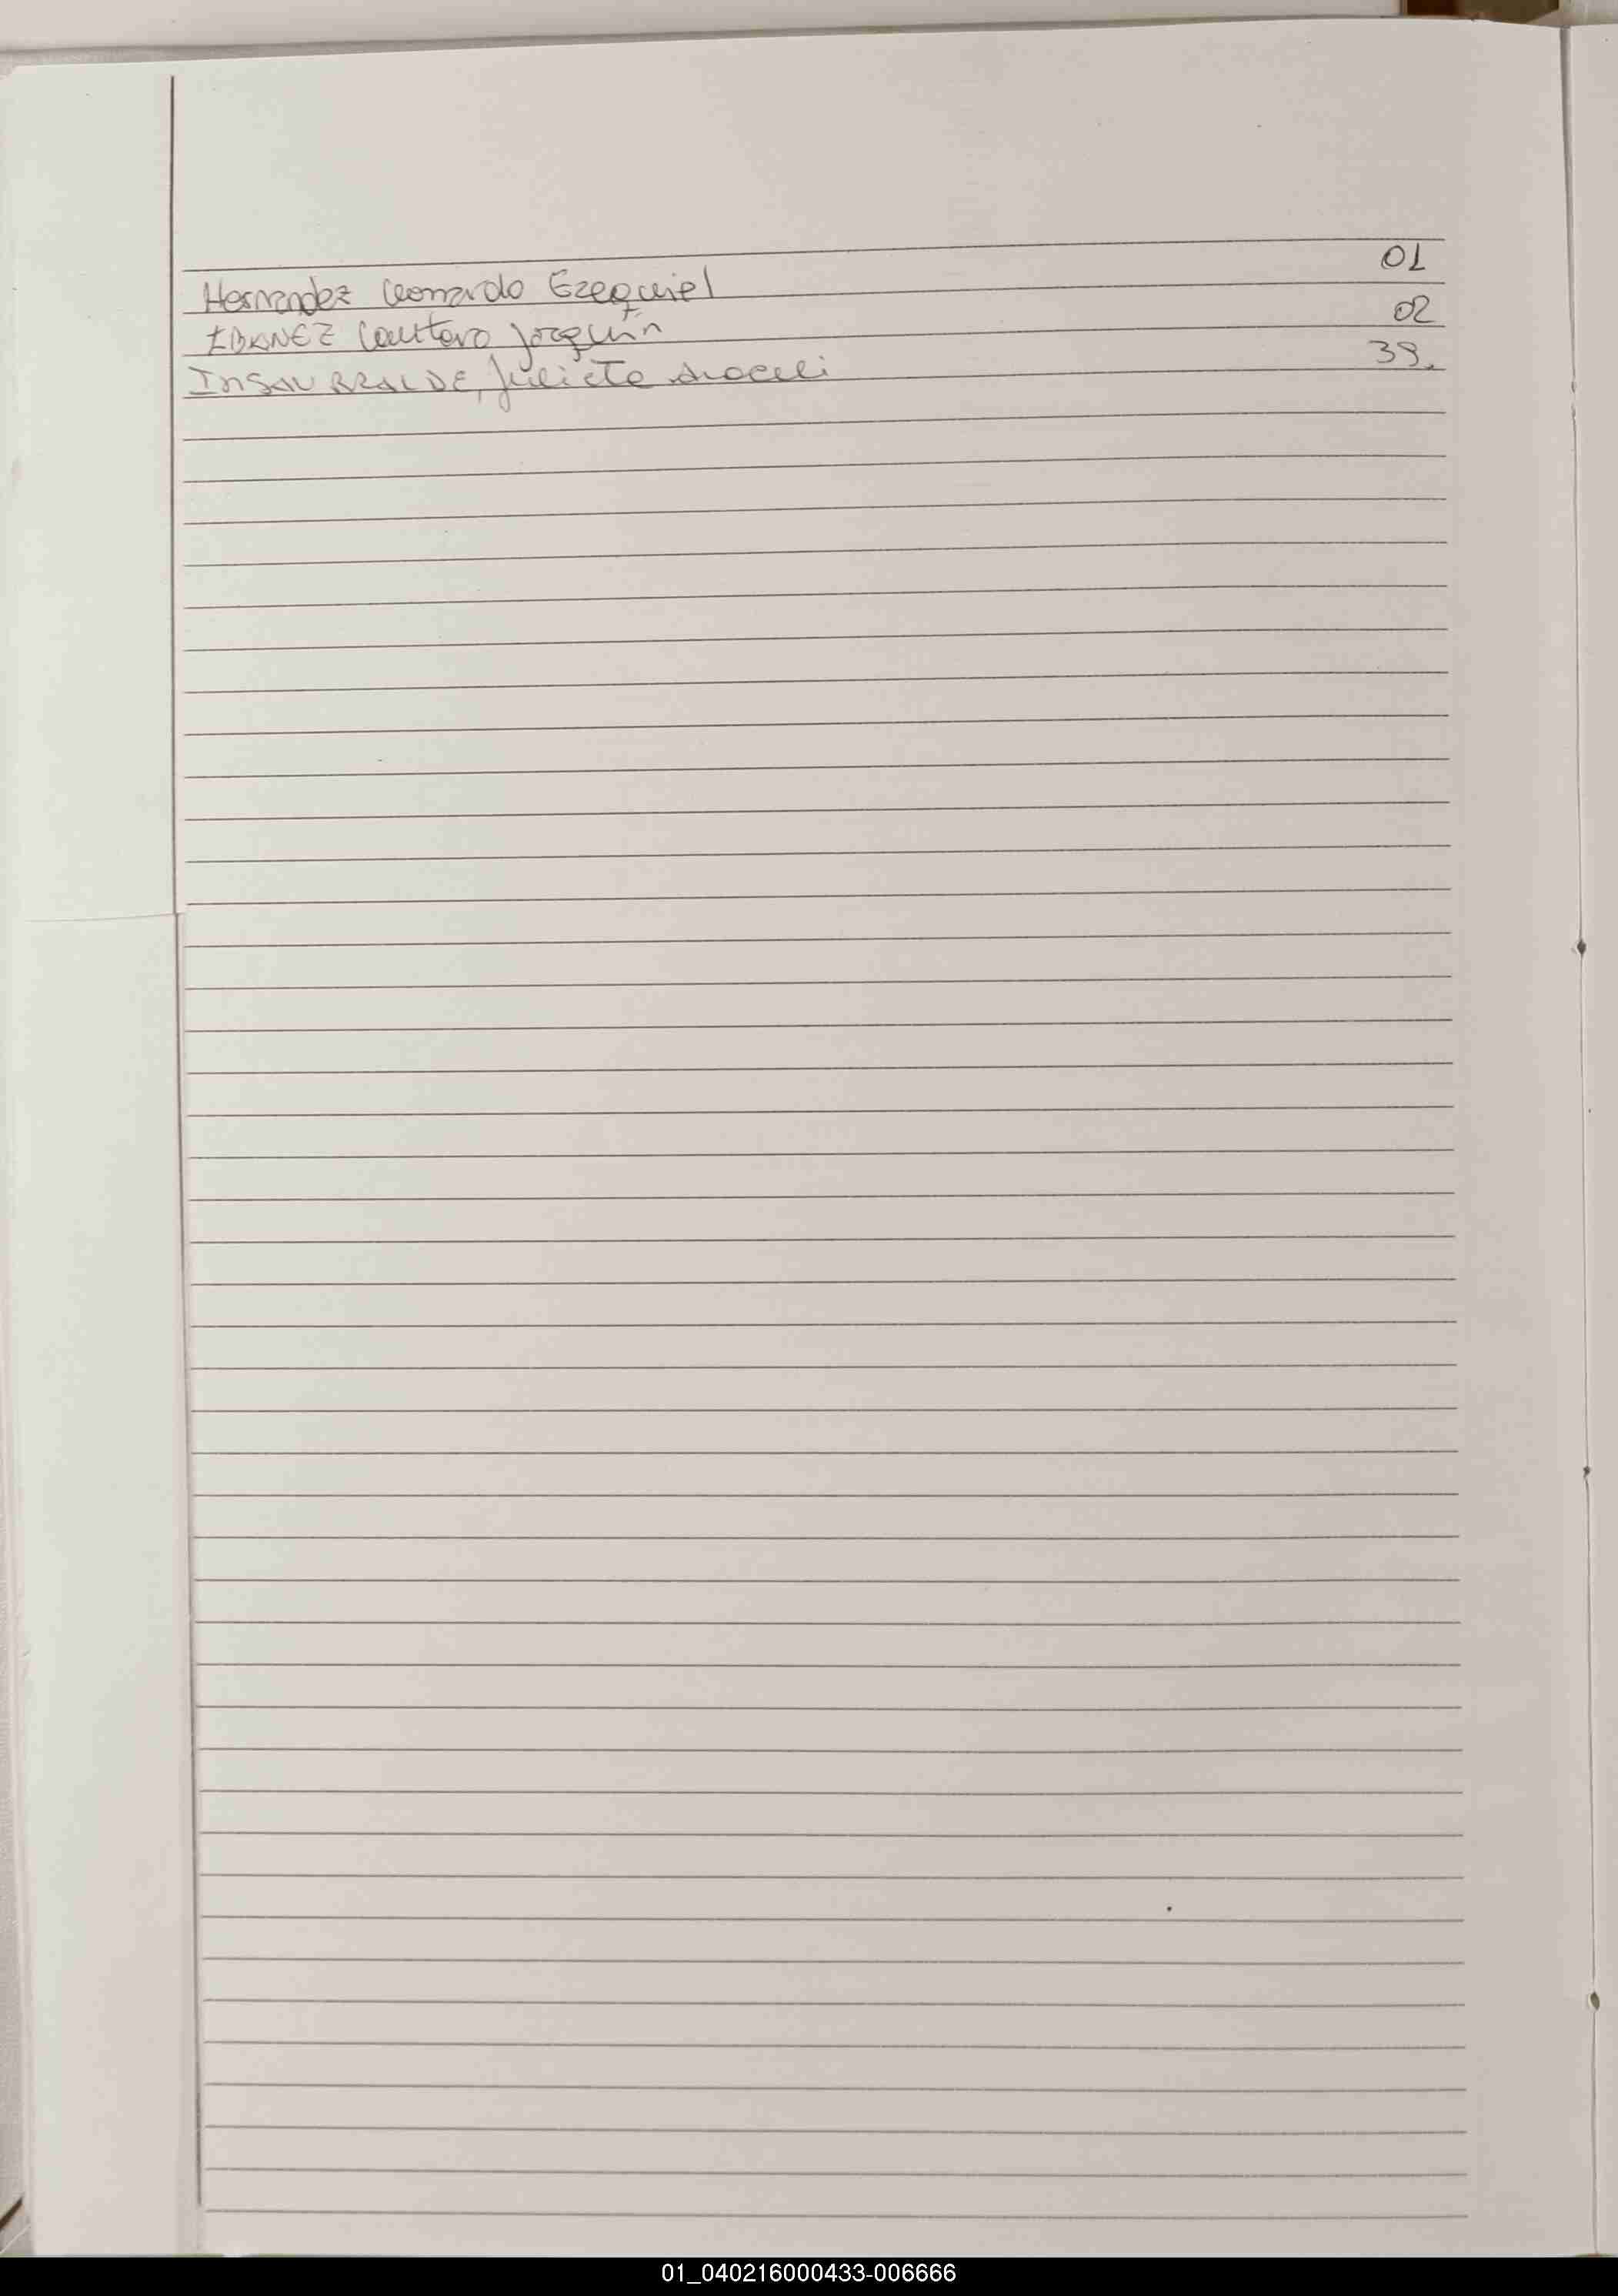 Hernandez Leonardo Ezequiel 01
IBANEZ Lautaro Joaquín 02
INSAURRALDE, Julieta Araceli 39.
01_040216000433-006666